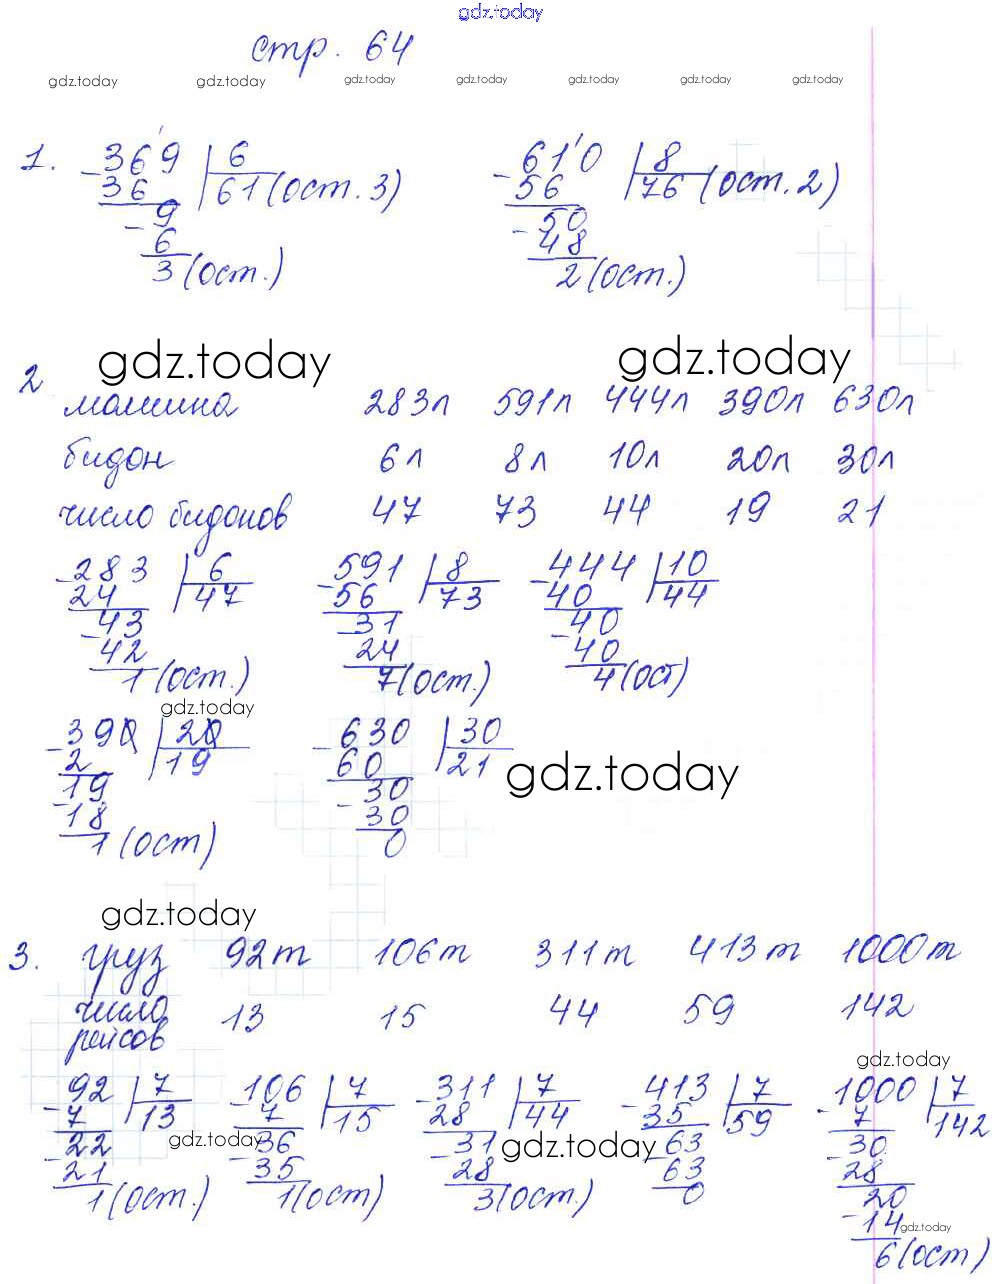 gdz.today
стр. 64
gdz.today gdz.today gdz.today gdz.today gdz.today gdz.today gdz.today
1. 369 | 6 610 | 8
36 61 (ост. 3) 56 76 (ост. 2)
9 50
6 48
3 (ост.) 2 (ост.)
gdz.today gdz.today
2
машина 283л 591л 444л 390л 630л
бидон 6л 8л 10л 20л 30л
число бидонов 47 73 44 19 21
-283 | 6 -591 | 8 -444 | 10
24 47 56 73 40 44
-43 31 40
42 24 -40
1 (ост.) 7 (ост.) 4 (ост)
gdz.today
-390 | 20 -630 | 30
2 19 60 21
gdz.today
19 -30
-18 30
1 (ост) 0
gdz.today
3. груз 92т 106т 311т 413т 1000т
число
рейсов 13 15 44 59 142
gdz.today
-92 | 7 -106 | 7 -311 | 7 -413 | 7 -1000 | 7
7 13 7 15 28 44 35 59 7 142
gdz.today gdz.today
-22 -36 -31 -63 -30
21 35 28 63 28
1 (ост.) 1 (ост) 3 (ост.) 0 20
-14
gdz.today
6 (ост)